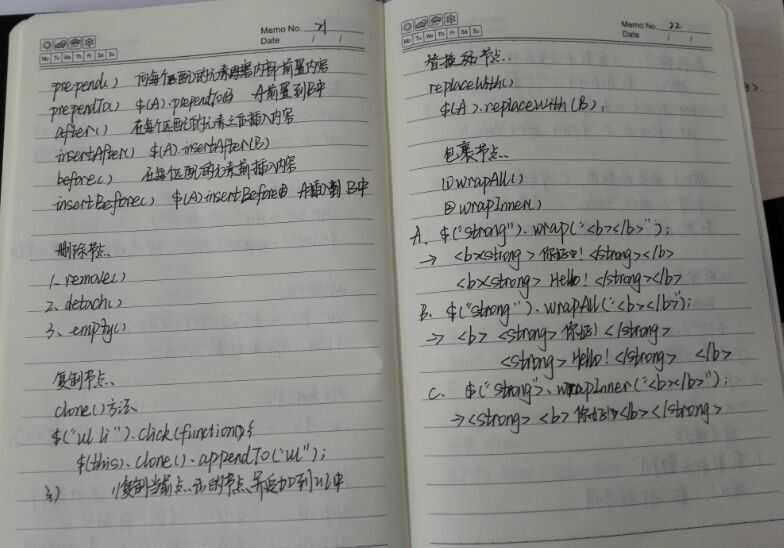 Memo No. 21
Mo Tu We Th Fr Sa Su
Date / /
prepend() 向每个匹配的元素内部前置内容
prependTo() $(A).prependTo(B) A前置到B中
after() 在每个匹配的元素之后插入内容
insertAfter() $(A).insertAfter(B)
before() 在每个匹配的元素前插入内容
insertBefore() $(A).insertBefore(B) A插入到B中
删除节点、
1、remove()
2、detach()
3、empty()
复制节点、
clone()方法、
$("ul li").click(function(){
$(this).clone().appendTo("ul");
}) //复制当前点击的节点,并追加到ul中
Memo No. 22
Mo Tu We Th Fr Sa Su
Date / /
替换节点、
replaceWith()
$(A).replaceWith(B),
包裹节点、
①wrapAll()
②wrapInner()
A、$("strong").wrap("<b></b>");
→ <b><strong>你好!</strong></b>
<b><strong>Hello!</strong></b>
B、$("strong").wrapAll("<b></b>");
→ <b><strong>你好!</strong>
<strong>Hello!</strong></b>
C、$("strong").wrapInner("<b></b>");
→<strong><b>你好!</b></strong>